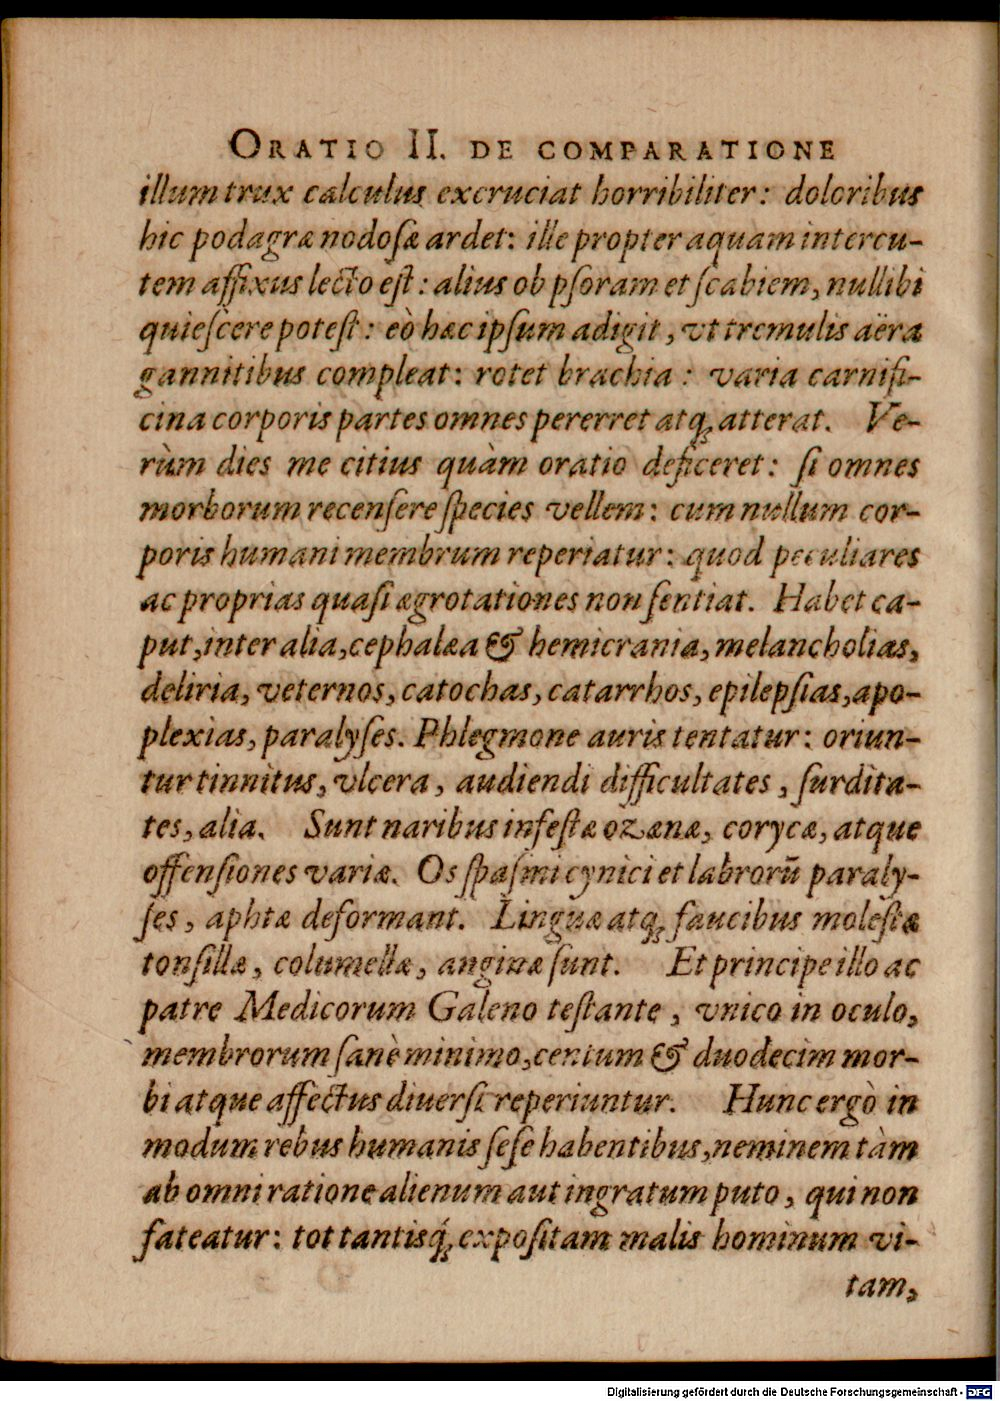 ORATIO II. DE COMPARATIONE
illum trux calculus excruciat horribiliter: doloribus
hic podagræ nodoſæ ardet: ille propter aquam intercu-
tem affixus lecto eſt: alius ob pſoram et ſcabiem, nullibì
quieſcere poteſt: eò hæc ipſum adigit, vt tremulis aëra
gannitibus compleat: rotet brachia: varia carnifi-
cina corporis partes omnes pererret atq; atterat. Ve-
rùm dies me citius quàm oratio deficeret: ſi omnes
morborum recenſere ſpecies vellem: cum nullum cor-
poris humani membrum reperiatur: quod peculiares
ac proprias quaſi ægrotationes non ſentiat. Habet ca-
put, inter alia, cephalæa & hemicrania, melancholias,
deliria, veternos, catochas, catarrhos, epilepſias, apo-
plexias, paralyſes. Phlegmone auris tentatur: oriun-
tur tinnitus, vlcera, audiendi difficultates, ſurdita-
tes, alia. Sunt naribus infeſtæ ozænæ, corycæ, atque
offenſiones variæ. Os ſpaſmi cynici et labrorū paraly-
ſes, aphtæ deformant. Linguæ atq; faucibus moleſtæ
tonſillæ, columellæ, anginæ ſunt. Et principe illo ac
patre Medicorum Galeno teſtante, vnico in oculo,
membrorum ſanè minimo, centum & duodecim mor-
bi atque affectus diuerſi reperiuntur. Hunc ergò in
modum rebus humanis ſeſe habentibus, neminem tàm
ab omni ratione alienum aut ingratum puto, qui non
fateatur: tot tantisq́; expoſitam malis hominum vi-
tam,
Digitalisierung gefördert durch die Deutsche Forschungsgemeinschaft - DFG